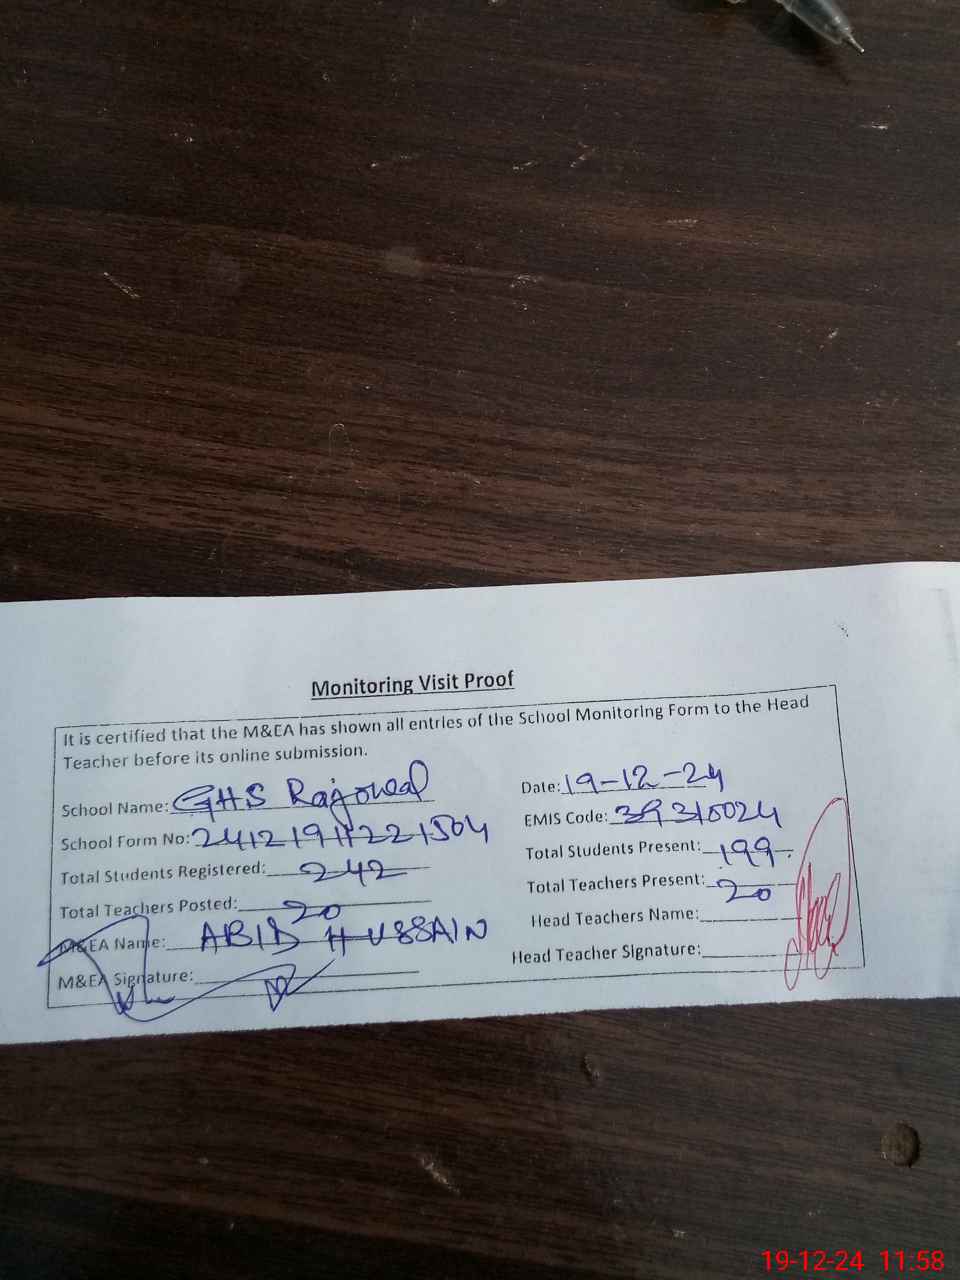 Monitoring Visit Proof
It is certified that the M&EA has shown all entries of the School Monitoring Form to the Head
Teacher before its online submission.
School Name: GHS Rajowal Date: 19-12-24
School Form No: 24121911221504 EMIS Code: 39310024
Total Students Registered: 242 Total Students Present: 199
Total Teachers Posted: 20 Total Teachers Present: 20
M&EA Name: ABID HUSSAIN Head Teachers Name:
M&EA Signature: Head Teacher Signature:
19-12-24 11:58